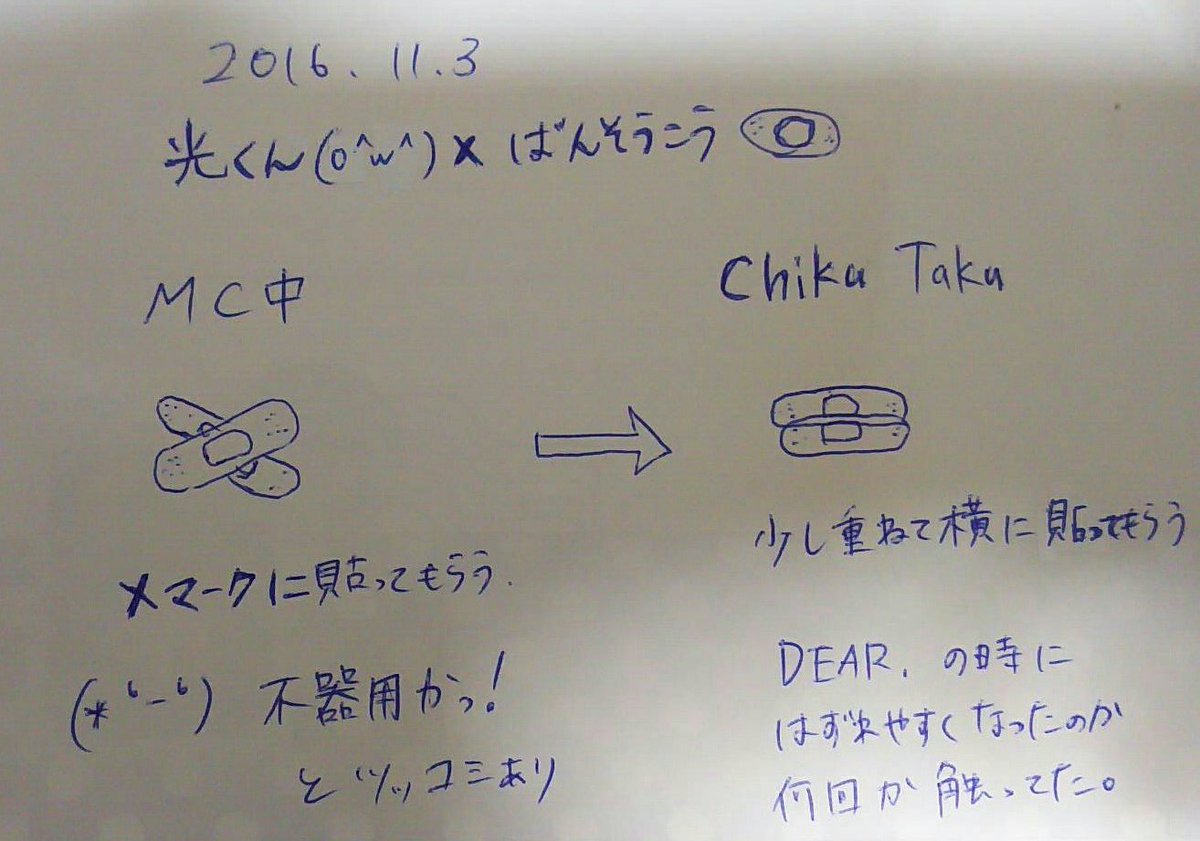 2016.11.3
光くん(o^w^)×ばんそうこう
MC中
×マークに貼ってもらう.
(*'-')不器用かっ!
とツッコミあり
Chiku Taku
少し重ねて横に貼ってもらう
DEAR.の時に
はずれやすくなったのか
何回か触ってた。